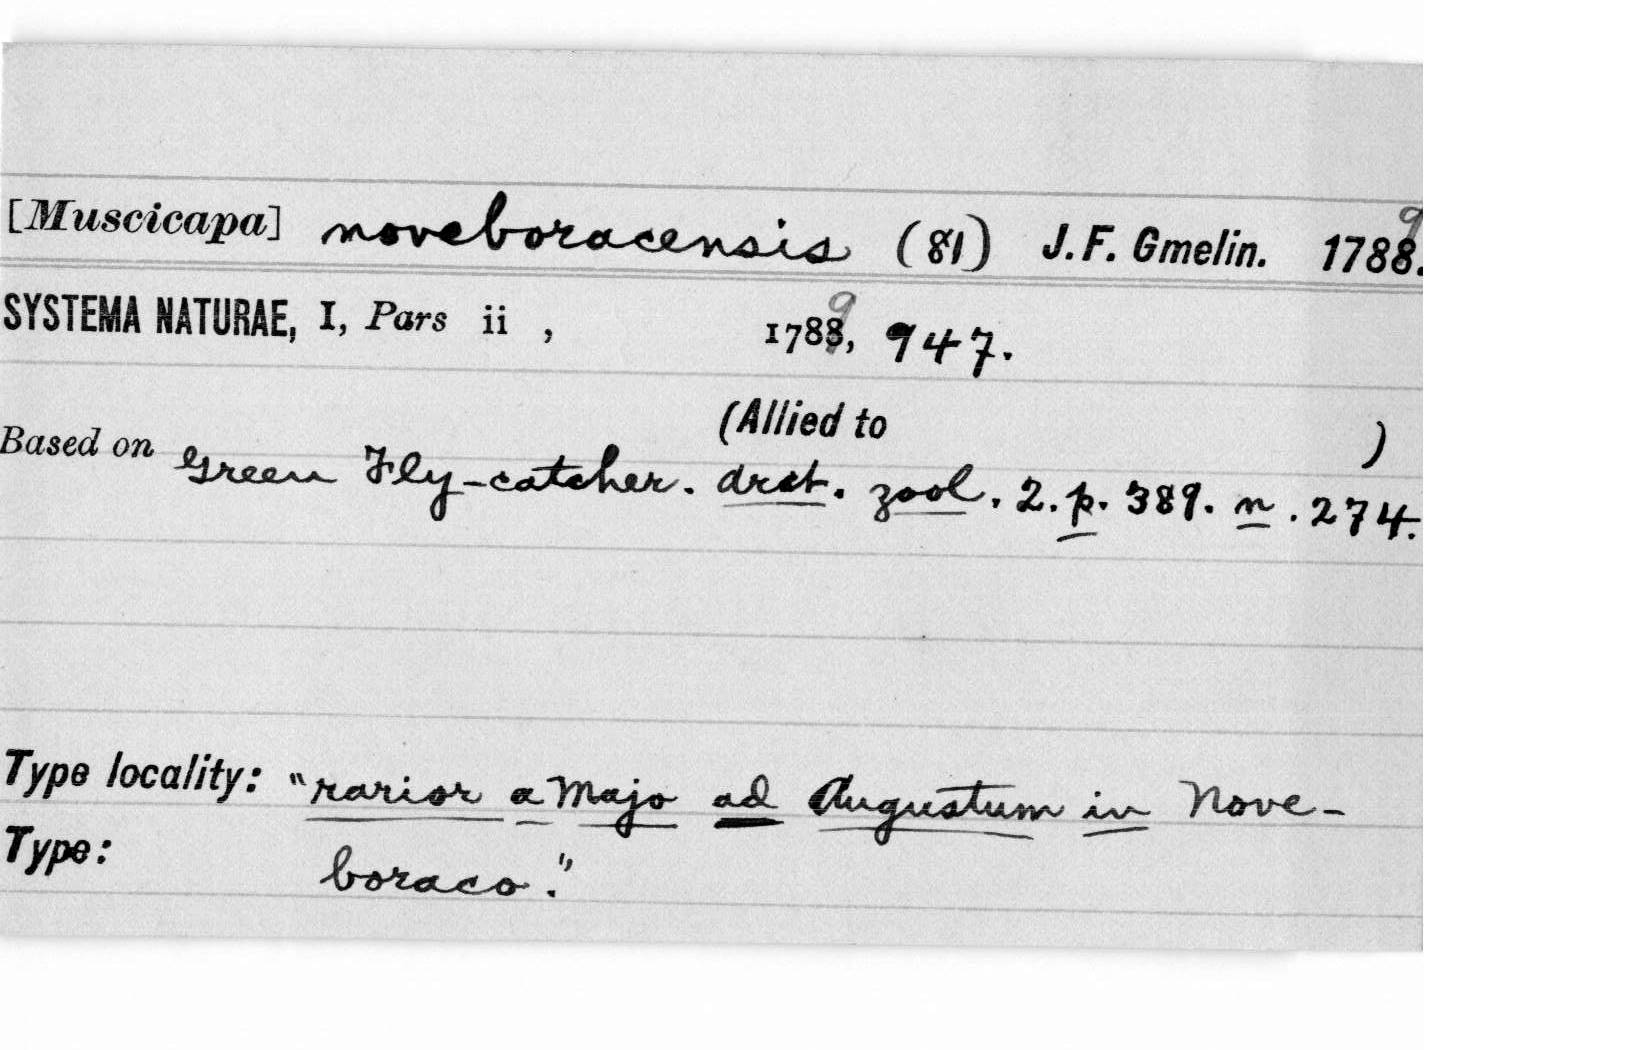 [Muscicapa] noveboracensis (81) J.F. Gmelin. 17889.
SYSTEMA NATURAE, I, Pars ii , 17889, 947.
(Allied to )
Based on Green Fly-catcher. arct. zool. 2. p. 389. n. 274.
Type locality: "rarior a Majo ad Augustum in Nove-
Type: boraco."